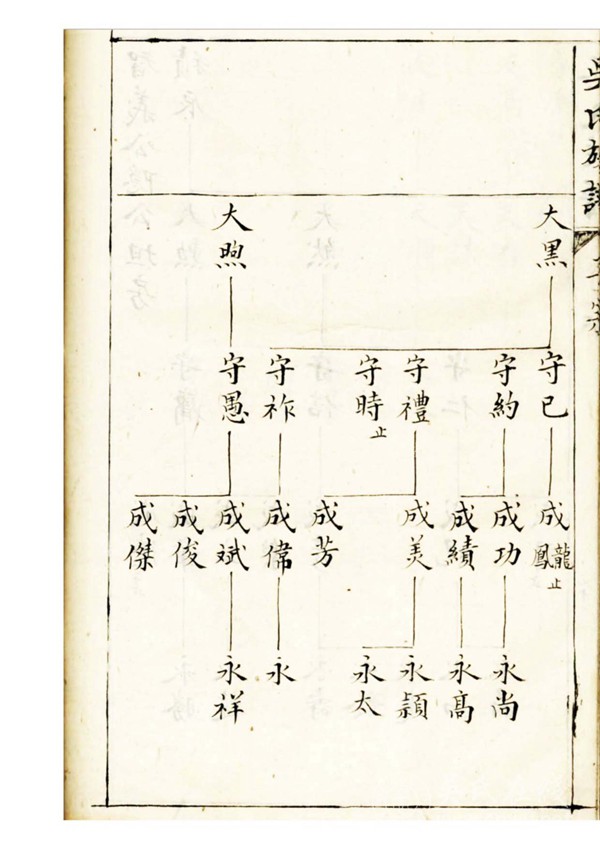 吳氏族譜
大黑
大煦
守已
守約
守禮
守時止
守祚
守愚
成龍鳳止
成功
成績
成美
成芳
成偉
成斌
成俊
成傑
永尚
永高
永穎
永太
永
永祥